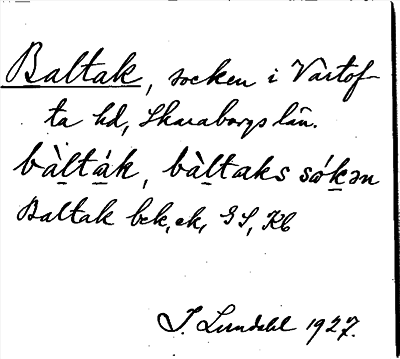 Baltak, socken i Vartof-
ta hd, Skaraborgs län.
bàlták, bàltaks sókən
Baltak bck, ek, GS, Kb
I. Lundahl 1927.